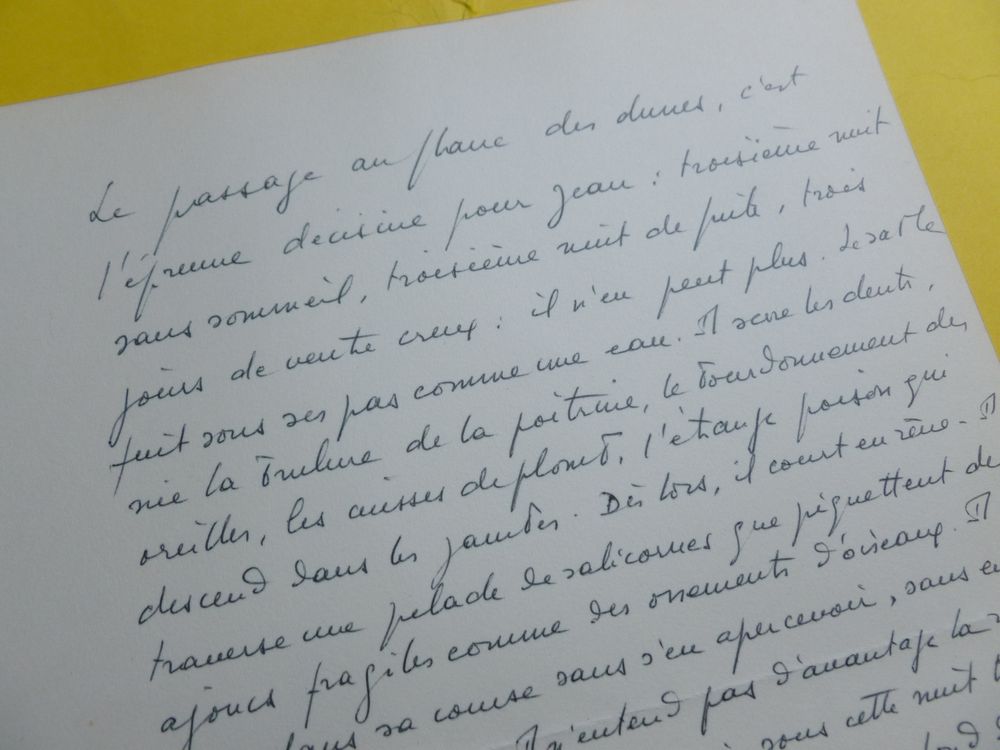 Le passage au flanc des dunes, c'est
l'épreuve décisive pour Jean : troisième nuit
sans sommeil, troisième nuit de fuite, trois
jours de ventre creux : il n'en peut plus. Le sable
fuit sous ses pas comme une eau. Il serre les dents,
nie la brulure de la poitrine, le bourdonnement des
oreilles, les cuisses de plomb, l'étrange poison qui
descend dans les jambes. Dès lors, il court en rêve. Il
traverse une pelade de salicornes que piquettent des
ajoncs fragiles comme des ossements d'oiseaux. Il
dans sa course sans s'en apercevoir, sans en
Il n'entend pas d'avantage la
sous cette nuit